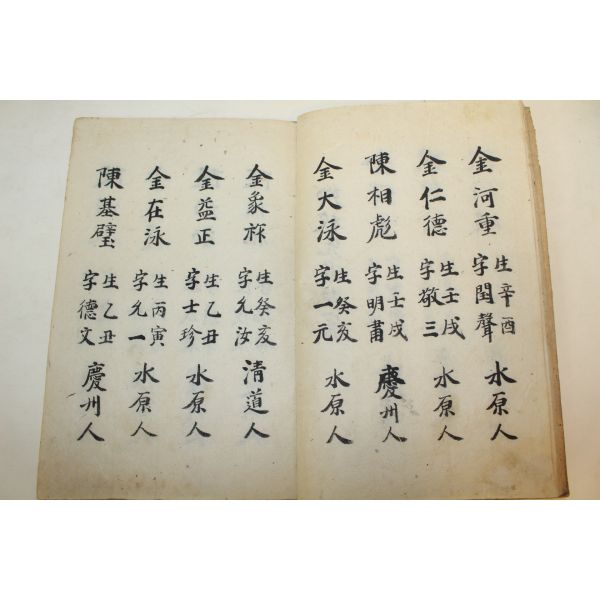 金河重 生辛酉 字閏聲 水原人
金仁德 生壬戌 字敬三 水原人
陳相彪 生壬戌 字明肅 慶州人
金大泳 生癸亥 字一元 水原人
金象祚 生癸亥 字允汝 清道人
金益正 生乙丑 字士珍 水原人
金在泳 生丙寅 字允一 水原人
陳基璧 生乙丑 字德文 慶州人